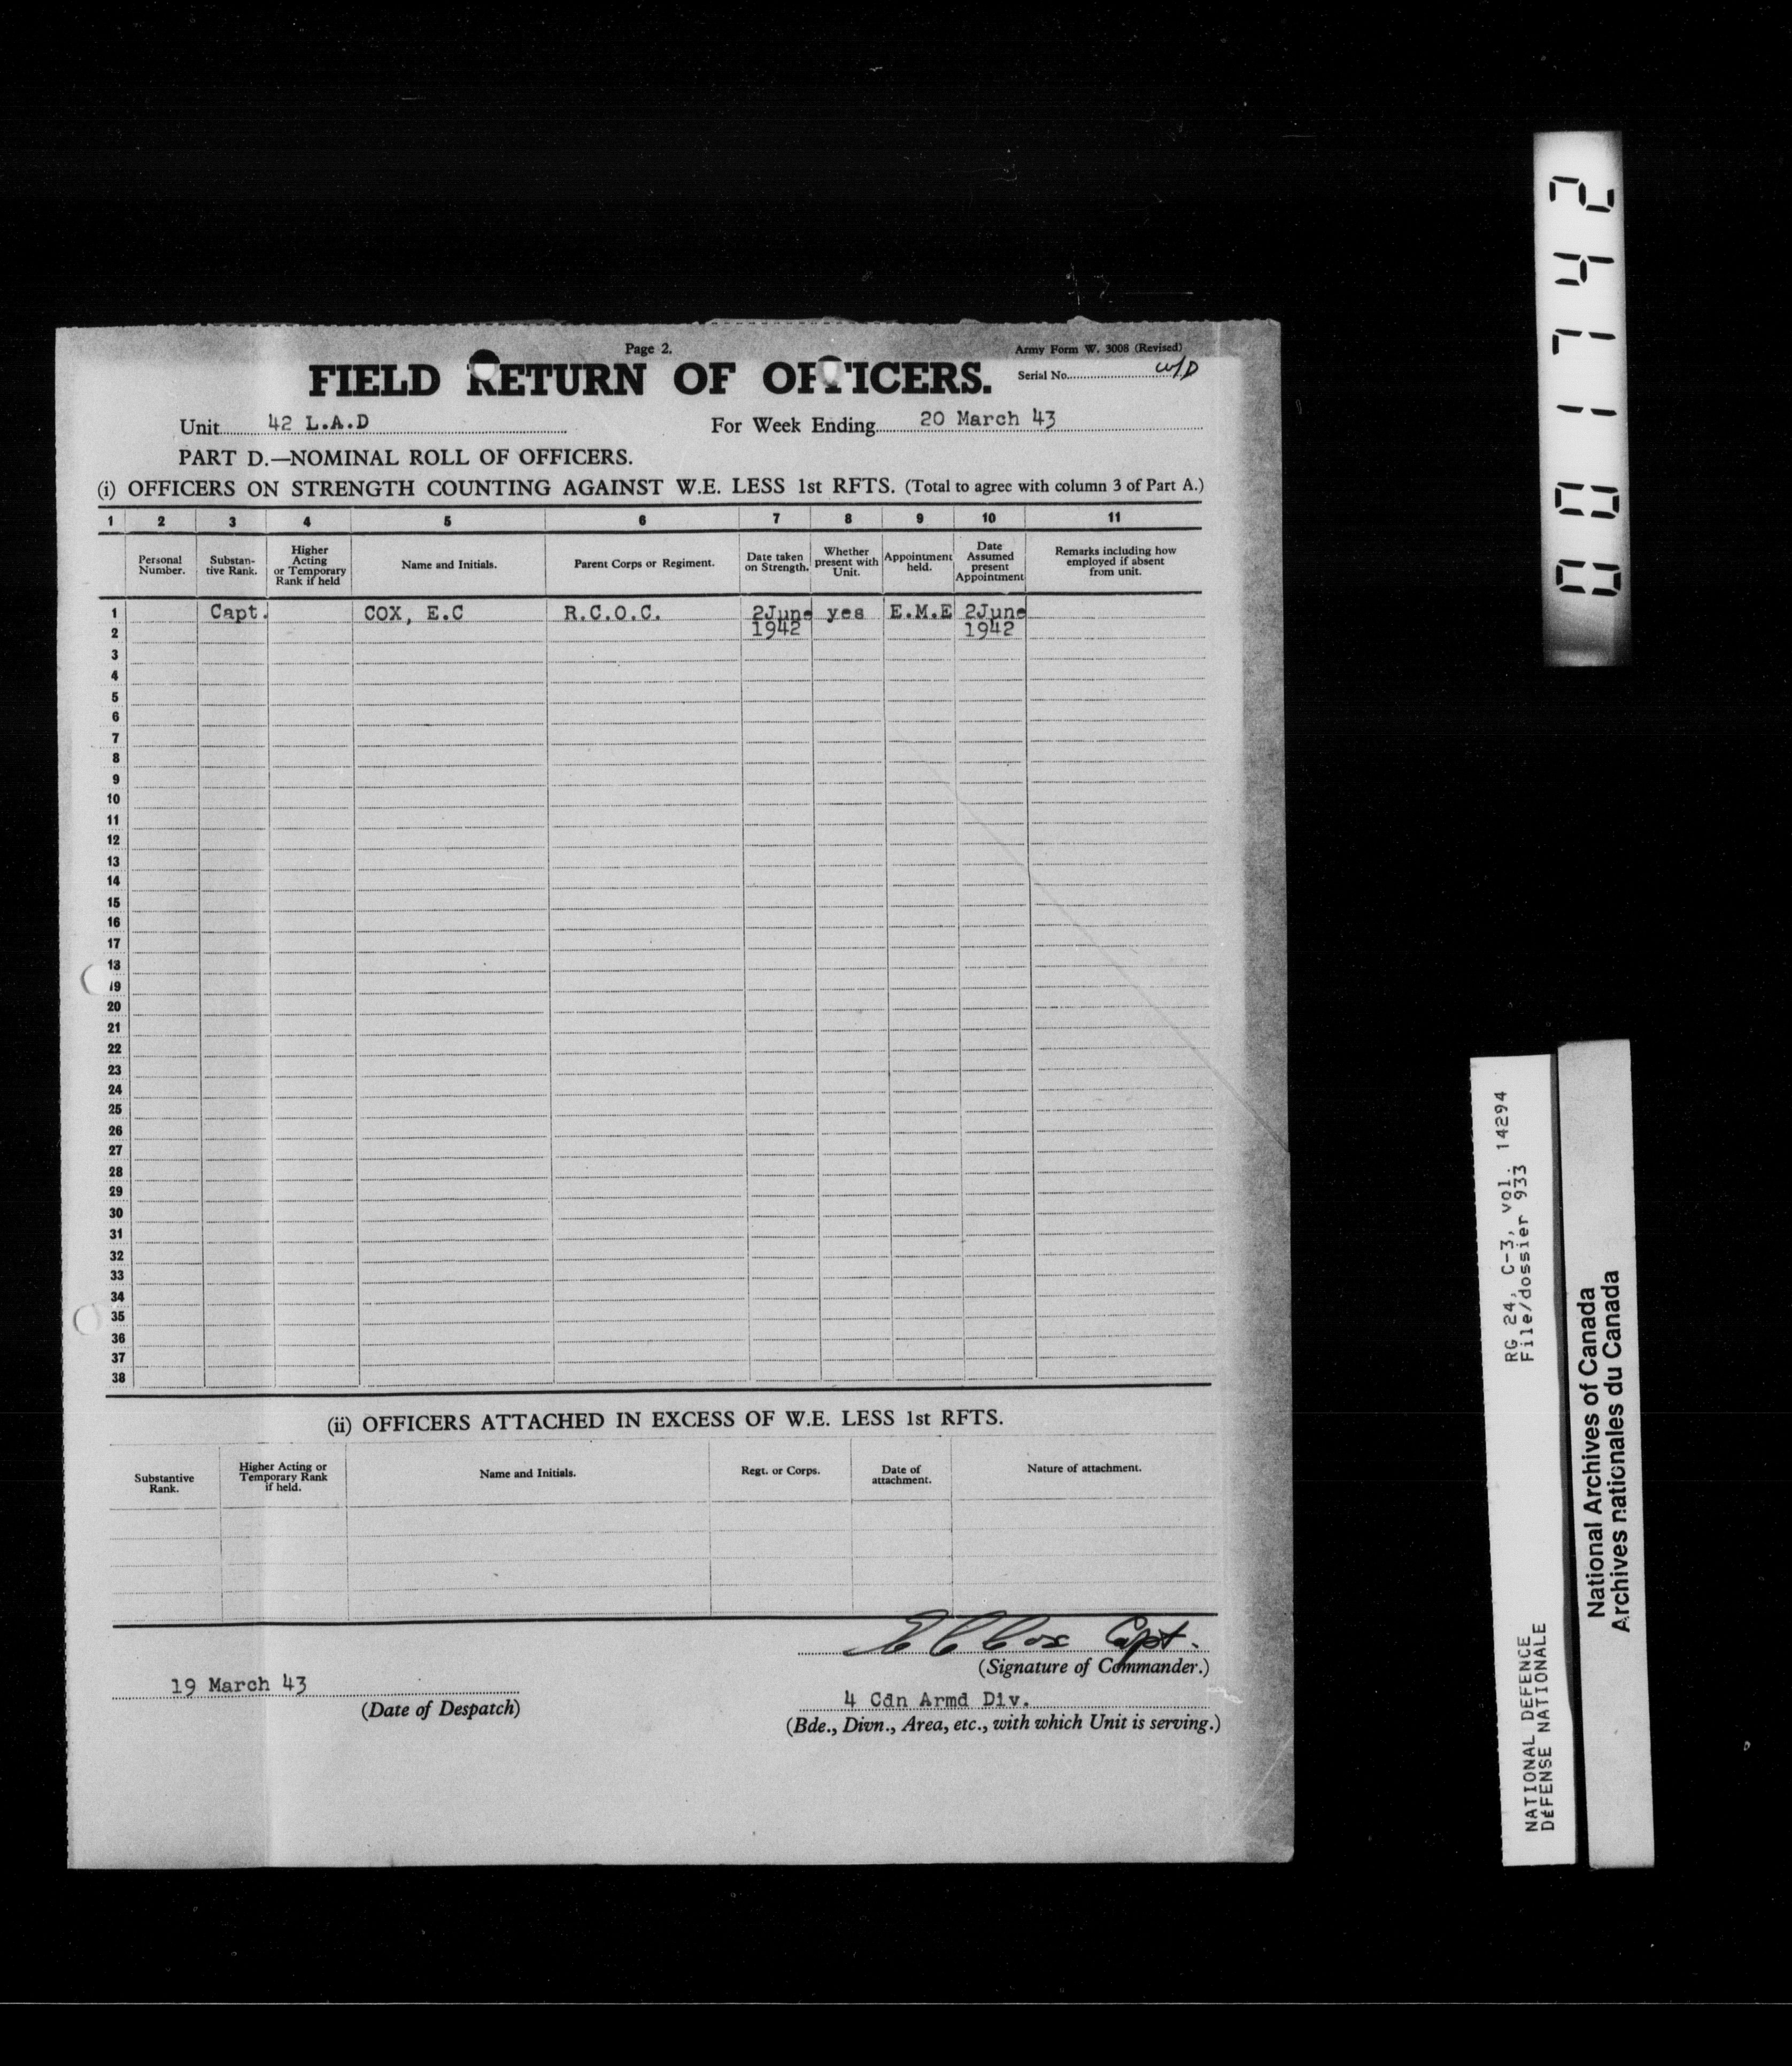 Page 2.
Army Form W. 3008 (Revised)
FIELD RETURN OF OFFICERS.
Serial No. W/D
Unit 42 L.A.D
For Week Ending 20 March 43
PART D.—NOMINAL ROLL OF OFFICERS.
(i) OFFICERS ON STRENGTH COUNTING AGAINST W.E. LESS 1st RFTS. (Total to agree with column 3 of Part A.)
1 2 3 4 5 6 7 8 9 10 11
Personal Number. Substan-tive Rank. Higher Acting or Temporary Rank if held Name and Initials. Parent Corps or Regiment. Date taken on Strength. Whether present with Unit. Appointment held. Date Assumed present Appointment Remarks including how employed if absent from unit.
1 Capt. COX, E.C R.C.O.C. 2June yes E.M.E 2June
2 1942 1942
3
4
5
6
7
8
9
10
11
12
13
14
15
16
17
18
19
20
21
22
23
24
25
26
27
28
29
30
31
32
33
34
35
36
37
38
(ii) OFFICERS ATTACHED IN EXCESS OF W.E. LESS 1st RFTS.
Substantive Rank. Higher Acting or Temporary Rank if held. Name and Initials. Regt. or Corps. Date of attachment. Nature of attachment.
E C Cox Capt.
(Signature of Commander.)
19 March 43
(Date of Despatch)
4 Cdn Armd Div.
(Bde., Divn., Area, etc., with which Unit is serving.)
001742
RG 24, C-3, vol. 14294
File/dossier 933
NATIONAL DEFENCE
DéFENSE NATIONALE
National Archives of Canada
Archives nationales du Canada